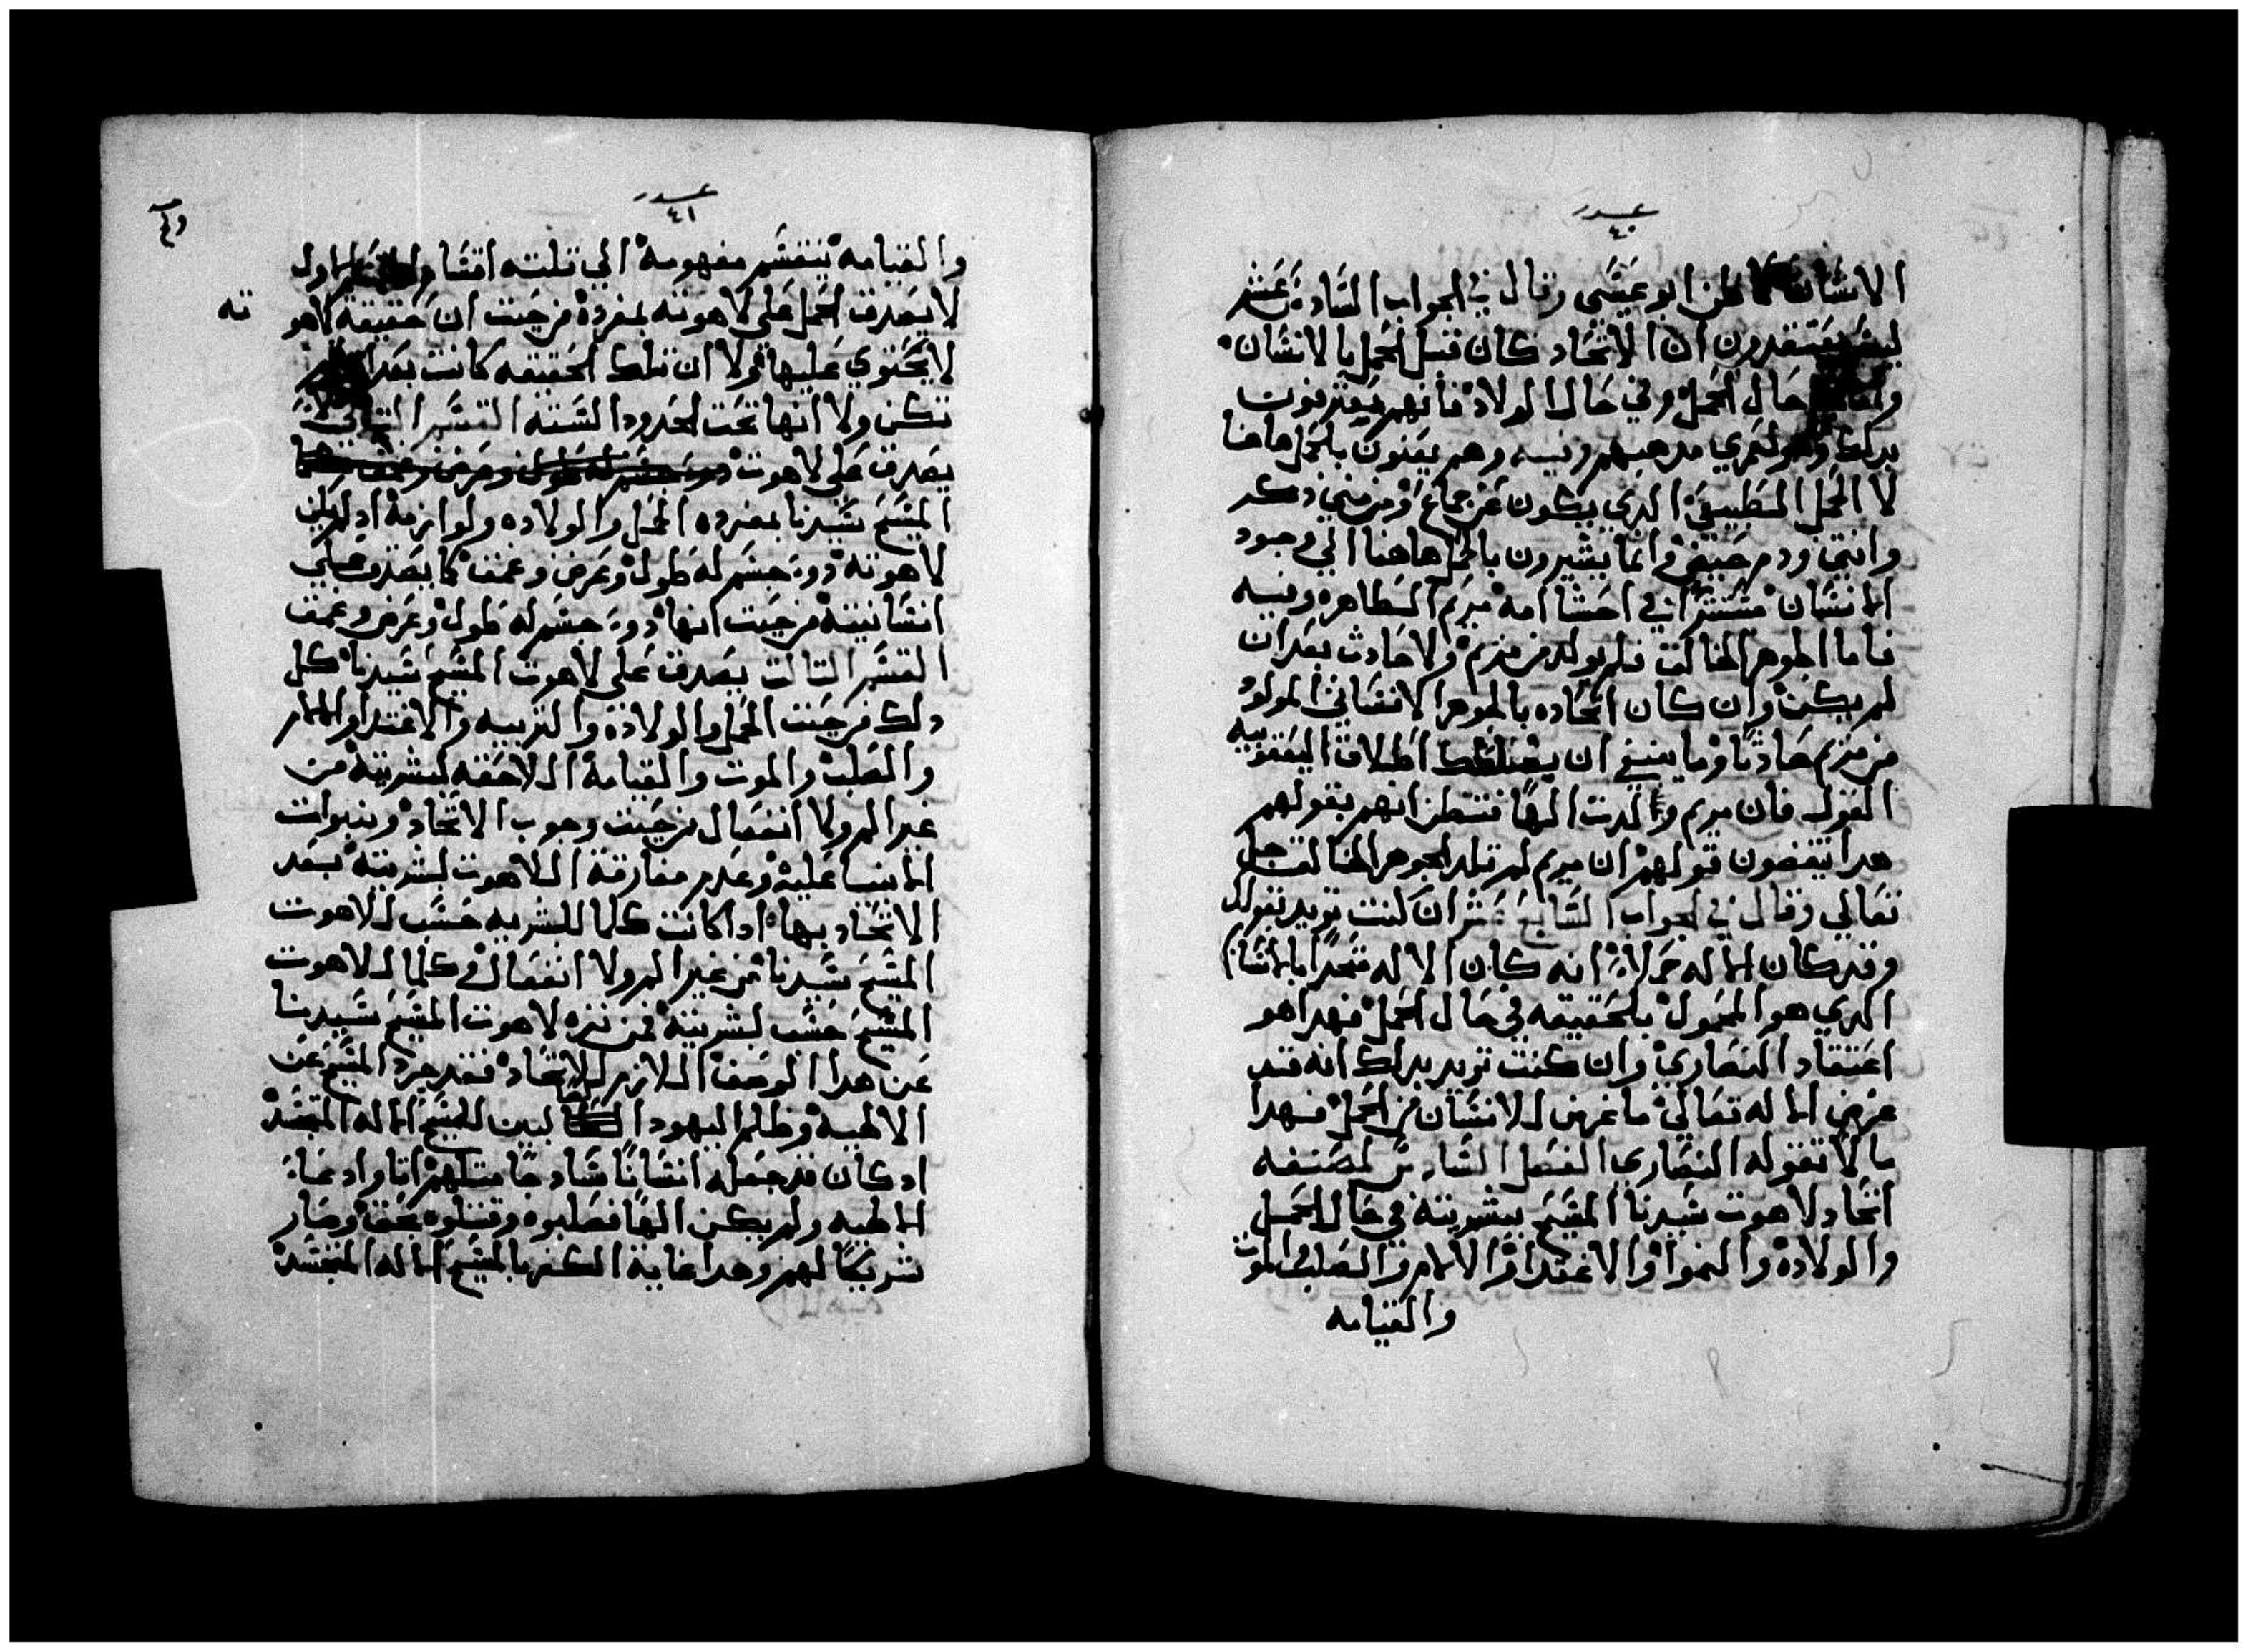 عدد
٤٠
الانسان كما ظن ابو عيسى وقال في الجواب السادس عشر
ليس يعتقدون ان الاتحاد كان قبل الحمل بالانسان
حال الحمل وفي حال الولاد فانهم يعترفون
بدلك وهو لعمري مدهبهم وفيه وهم يعنون بالحمل هاهنا
لا الحمل الطبيعي الدي يكون عن جماع ومن مني دكر
وانتي ودم حيض وانما يشيرون بالحمل هاهنا الي وجود
الانسان مستترًا في احشا امه مريم الطاهره وفيه
فاما الجوهر الخالق فلم يولد من مريم ولا حادث بعد ان
لم يكن وان كان اتحاده بالجوهر الانساني المولود
من مريم حادثًا وما ينبغي ان يغلطك اطلاق اليعقوبيه
القول فان مريم والدت الهًا فتظن انهم بقولهم
هدا ينقضون قولهم ان مريم لم تلد الجوهر الخالق جل
تعالي وقال في الجواب السابع عشر ان كنت تريد بقولك
وقد كان الاله حملا انه كان الاله متحدًا بالانسان
الدي هو المحمول بالحقيقه في حال الحمل فهدا هو
اعتقاد النصاري وان كنت تريد بدلك انه قد
عرض الاله تعالي ما عرض للانسان من الحمل فهدا
ما لا تقوله النصاري الفصل السادس لمصنفه
اتحاد لاهوت سيدنا المسيح ببشريته في حال الحمل
والولاده والنموا والاغتدا والالام والصلب والموت
والقيامه
عدد
٤١
والقيامه ينقسم مفهومه الي تلته اقسام الاول
لا يصدق الحمل علي لاهوته بمفرده من حيت ان حقيقة لاهو
ته
لا يحتوي عليها ولا ان تلك الحقيقه كانت بعد ان لم
تكن ولا انها تحت الحدود السته القسم التاني لا
يصدق علي لاهوت
المسيح سيدنا بمفرده الحمل والولاده ولوازمه اد لم يكن
لاهوته دو جسم له طول وعرض وعمق كما يصدق علي
انسانيته من حيت انها دو جسم له طول وعرض وعمق
القسم التالت يصدق علي لاهوت المسيح سيدنا كل
دلك من حيت الحمل والولاده والتربيه والاغتدا والالام
والصلب والموت والقيامه اللاحقه لبشريته من
غير الم ولا انفعال من حيت وجوب الاتحاد ونبوات
الانبيا عليه وعدم مفارقة اللاهوت لبشريته بعد
الاتحاد بها ادا كانت كلما للبشريه حسب للاهوت
المسيح سيدنا من غير الم ولا انفعال وكلما للاهوت
المسيح حسب لبشريته فمن نزه لاهوت المسيح سيدنا
عن هدا الوصف اللازم للاتحاد فقد جرد المسيح عن
الالهيه وظلم اليهود الصالبين للمسيح الاله المتجسد
اد كان قد جعله انسانًا سادجًا متلهم اتا وادعا
الالهيه ولم يكن الهًا فصلبوه وقتلوه بحق وصار
شريكًا لهم وهدا غاية الكفر بالمسيح الاله المتجسد